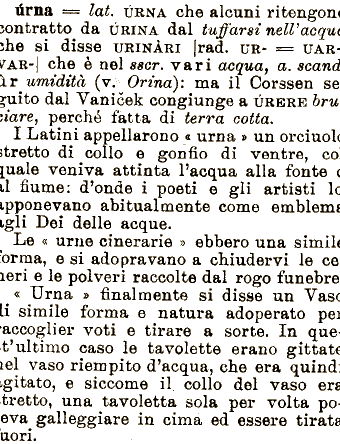 úrna = lat. ÚRNA che alcuni ritengono
contratto da ÚRINA dal tuffarsi nell'acqua
che si disse URINÀRI [rad. UR- = UAR-
VAR-] che è nel sscr. vari acqua, a. scand.
úr umidità (v. Orina): ma il Corssen se-
guito dal Vaniček congiunge a ÚRERE bru-
ciare, perché fatta di terra cotta.
I Latini appellarono « urna » un orciuolo
stretto di collo e gonfio di ventre, col
quale veniva attinta l'acqua alla fonte o
al fiume: d'onde i poeti e gli artisti lo
apponevano abitualmente come emblema
agli Dei delle acque.
Le « urne cinerarie » ebbero una simile
forma, e si adopravano a chiudervi le ce-
neri e le polveri raccolte dal rogo funebre.
« Urna » finalmente si disse un Vaso
di simile forma e natura adoperato per
raccoglier voti e tirare a sorte. In que-
st'ultimo caso le tavolette erano gittate
nel vaso riempito d'acqua, che era quindi
agitato, e siccome il collo del vaso era
stretto, una tavoletta sola per volta po-
teva galleggiare in cima ed essere tirata
fuori.